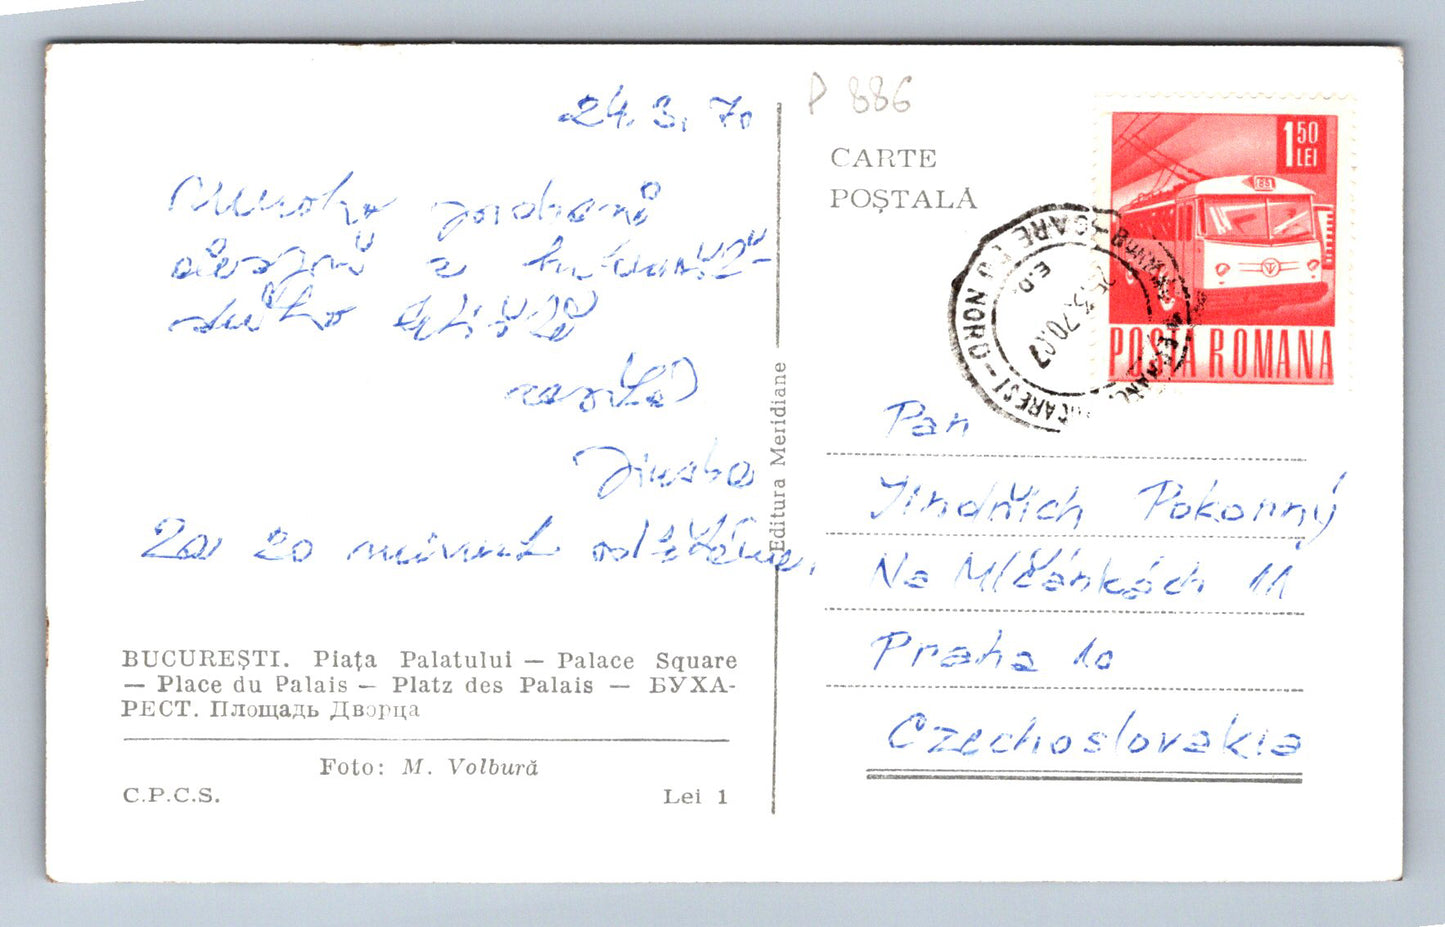 24. 3. 70
Mnoho pozdravů
z
zasílá
Jirka
Za 20 minut odlétáme.
BUCUREȘTI. Piața Palatului — Palace Square
— Place du Palais — Platz des Palais — БУХА-
РЕСТ. Площадь Дворца
Foto: M. Volbură
C.P.C.S. Lei 1
Editura Meridiane
P 886
CARTE
POȘTALĂ
1 50
LEI
POSTA ROMANA
BUCUREȘTI
GARE DU NORD
E.D.
25.3.70.07
Pan
Jindřich Pokorný
Na Mlčánkách 11
Praha 10
Czechoslovakia